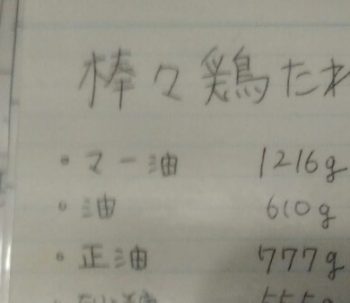 棒々鶏たれ
・マー油 1216g
・油 610g
・正油 777g
555g